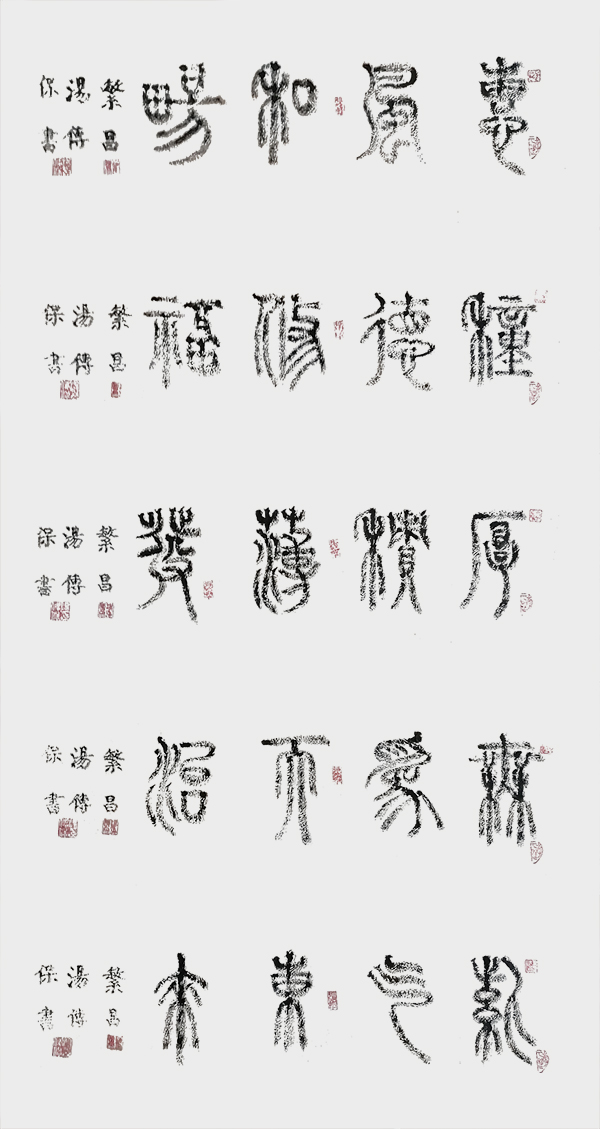 惠風和暢
繁昌
湯傳
保書
種德福
繁昌
湯傳
保書
厚積薄發
繁昌
湯傳
保書
無爲而治
繁昌
湯傳
保書
紫气東來
繁昌
湯傳
保書